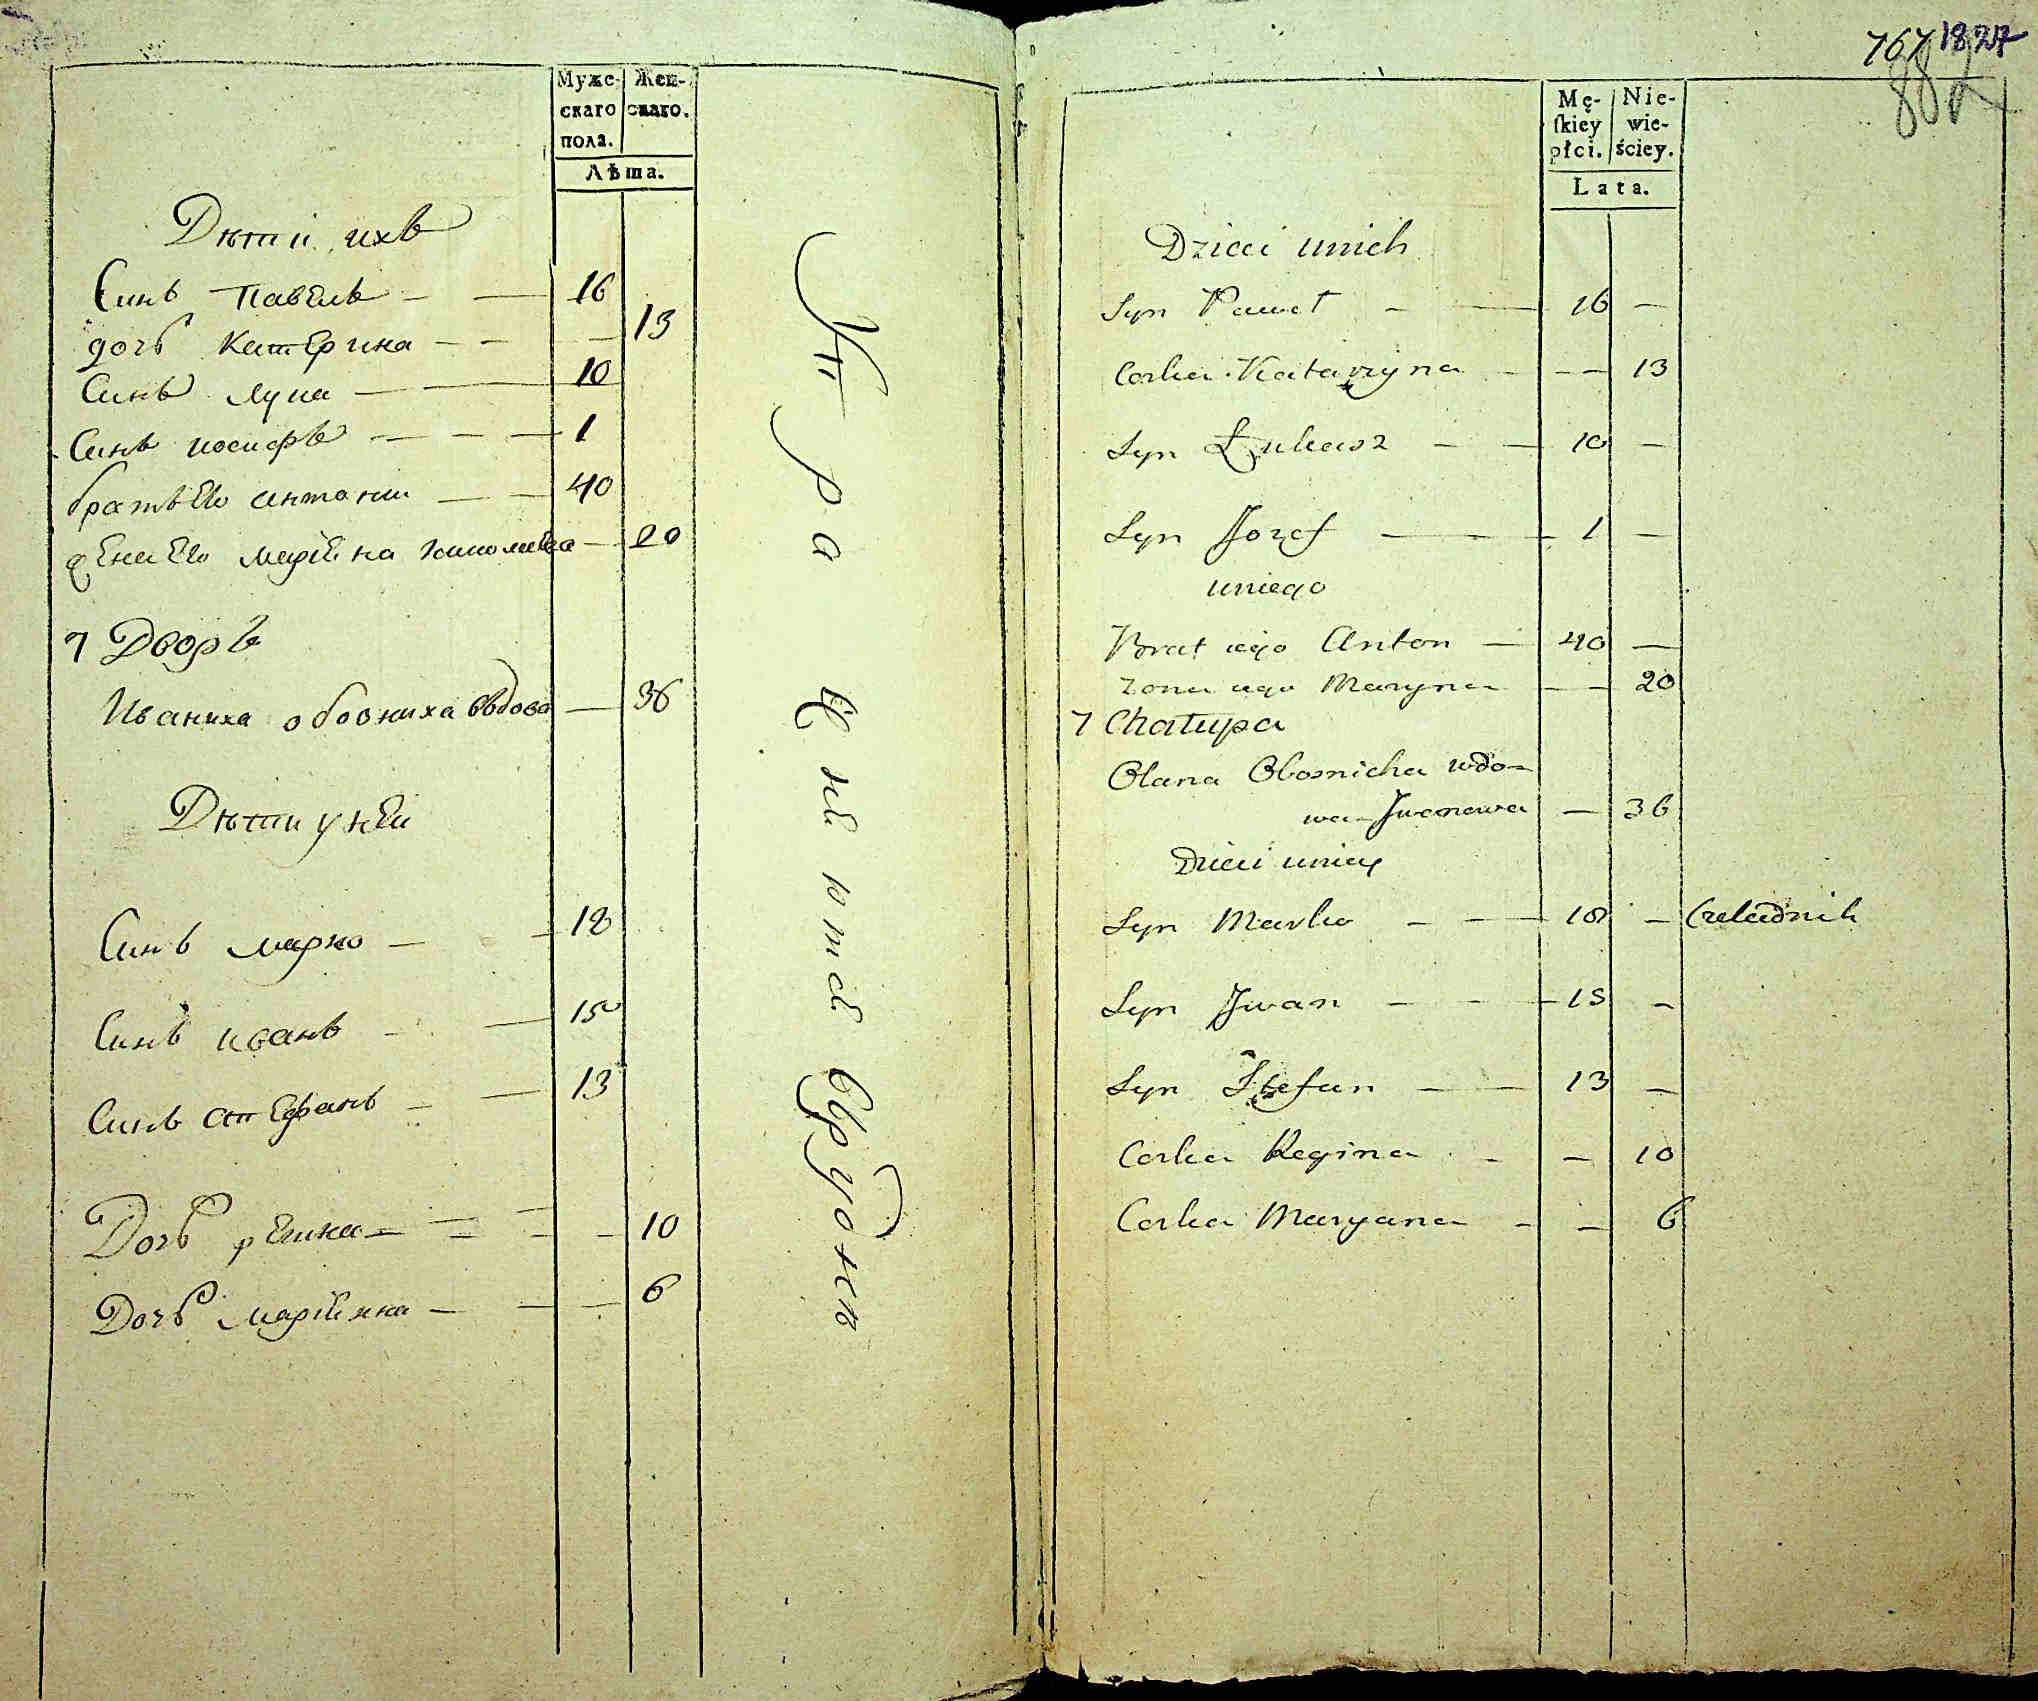 Муже-
скаго
пола.
Жен-
скаго.
Лѣта.
Дѣти ихъ
Синъ Павелъ — — 16
дочъ Катерина — — — 13
Синъ лука — — 10
Синъ иосифъ — — — 1
братъ Его антони — — 40
жена Его марिना — 20
7 Дворъ
Иваниха обозниха вдова — 36
Дѣти у неи
Синъ марко — — 18
Синъ иванъ — — 15
Синъ стефанъ — — 13
Дочъ — — — — 10
Дочъ мариянна — — — 6
767 1827
882
Mę-
skiey
płci.
Nie-
wie-
ściey.
Lata.
Dzieci unich
Syn Paweł — — 16 —
Corka Katarzyna — — — 13
Syn Łukasz — — 10 —
Syn Jozef — — 1 —
uniego
Brat iego Anton — 40 —
Zona iego Maryna — — 20
7 Chałupa
Olana Oboznicha wdo-
wa Iwanowa — 36
Dzieci uniey
Syn Marko — — 18 — Czeladnik
Syn Iwan — — 15 —
Syn Stefan — — 13 —
Corka Regina — — 10
Corka Maryana — — 6